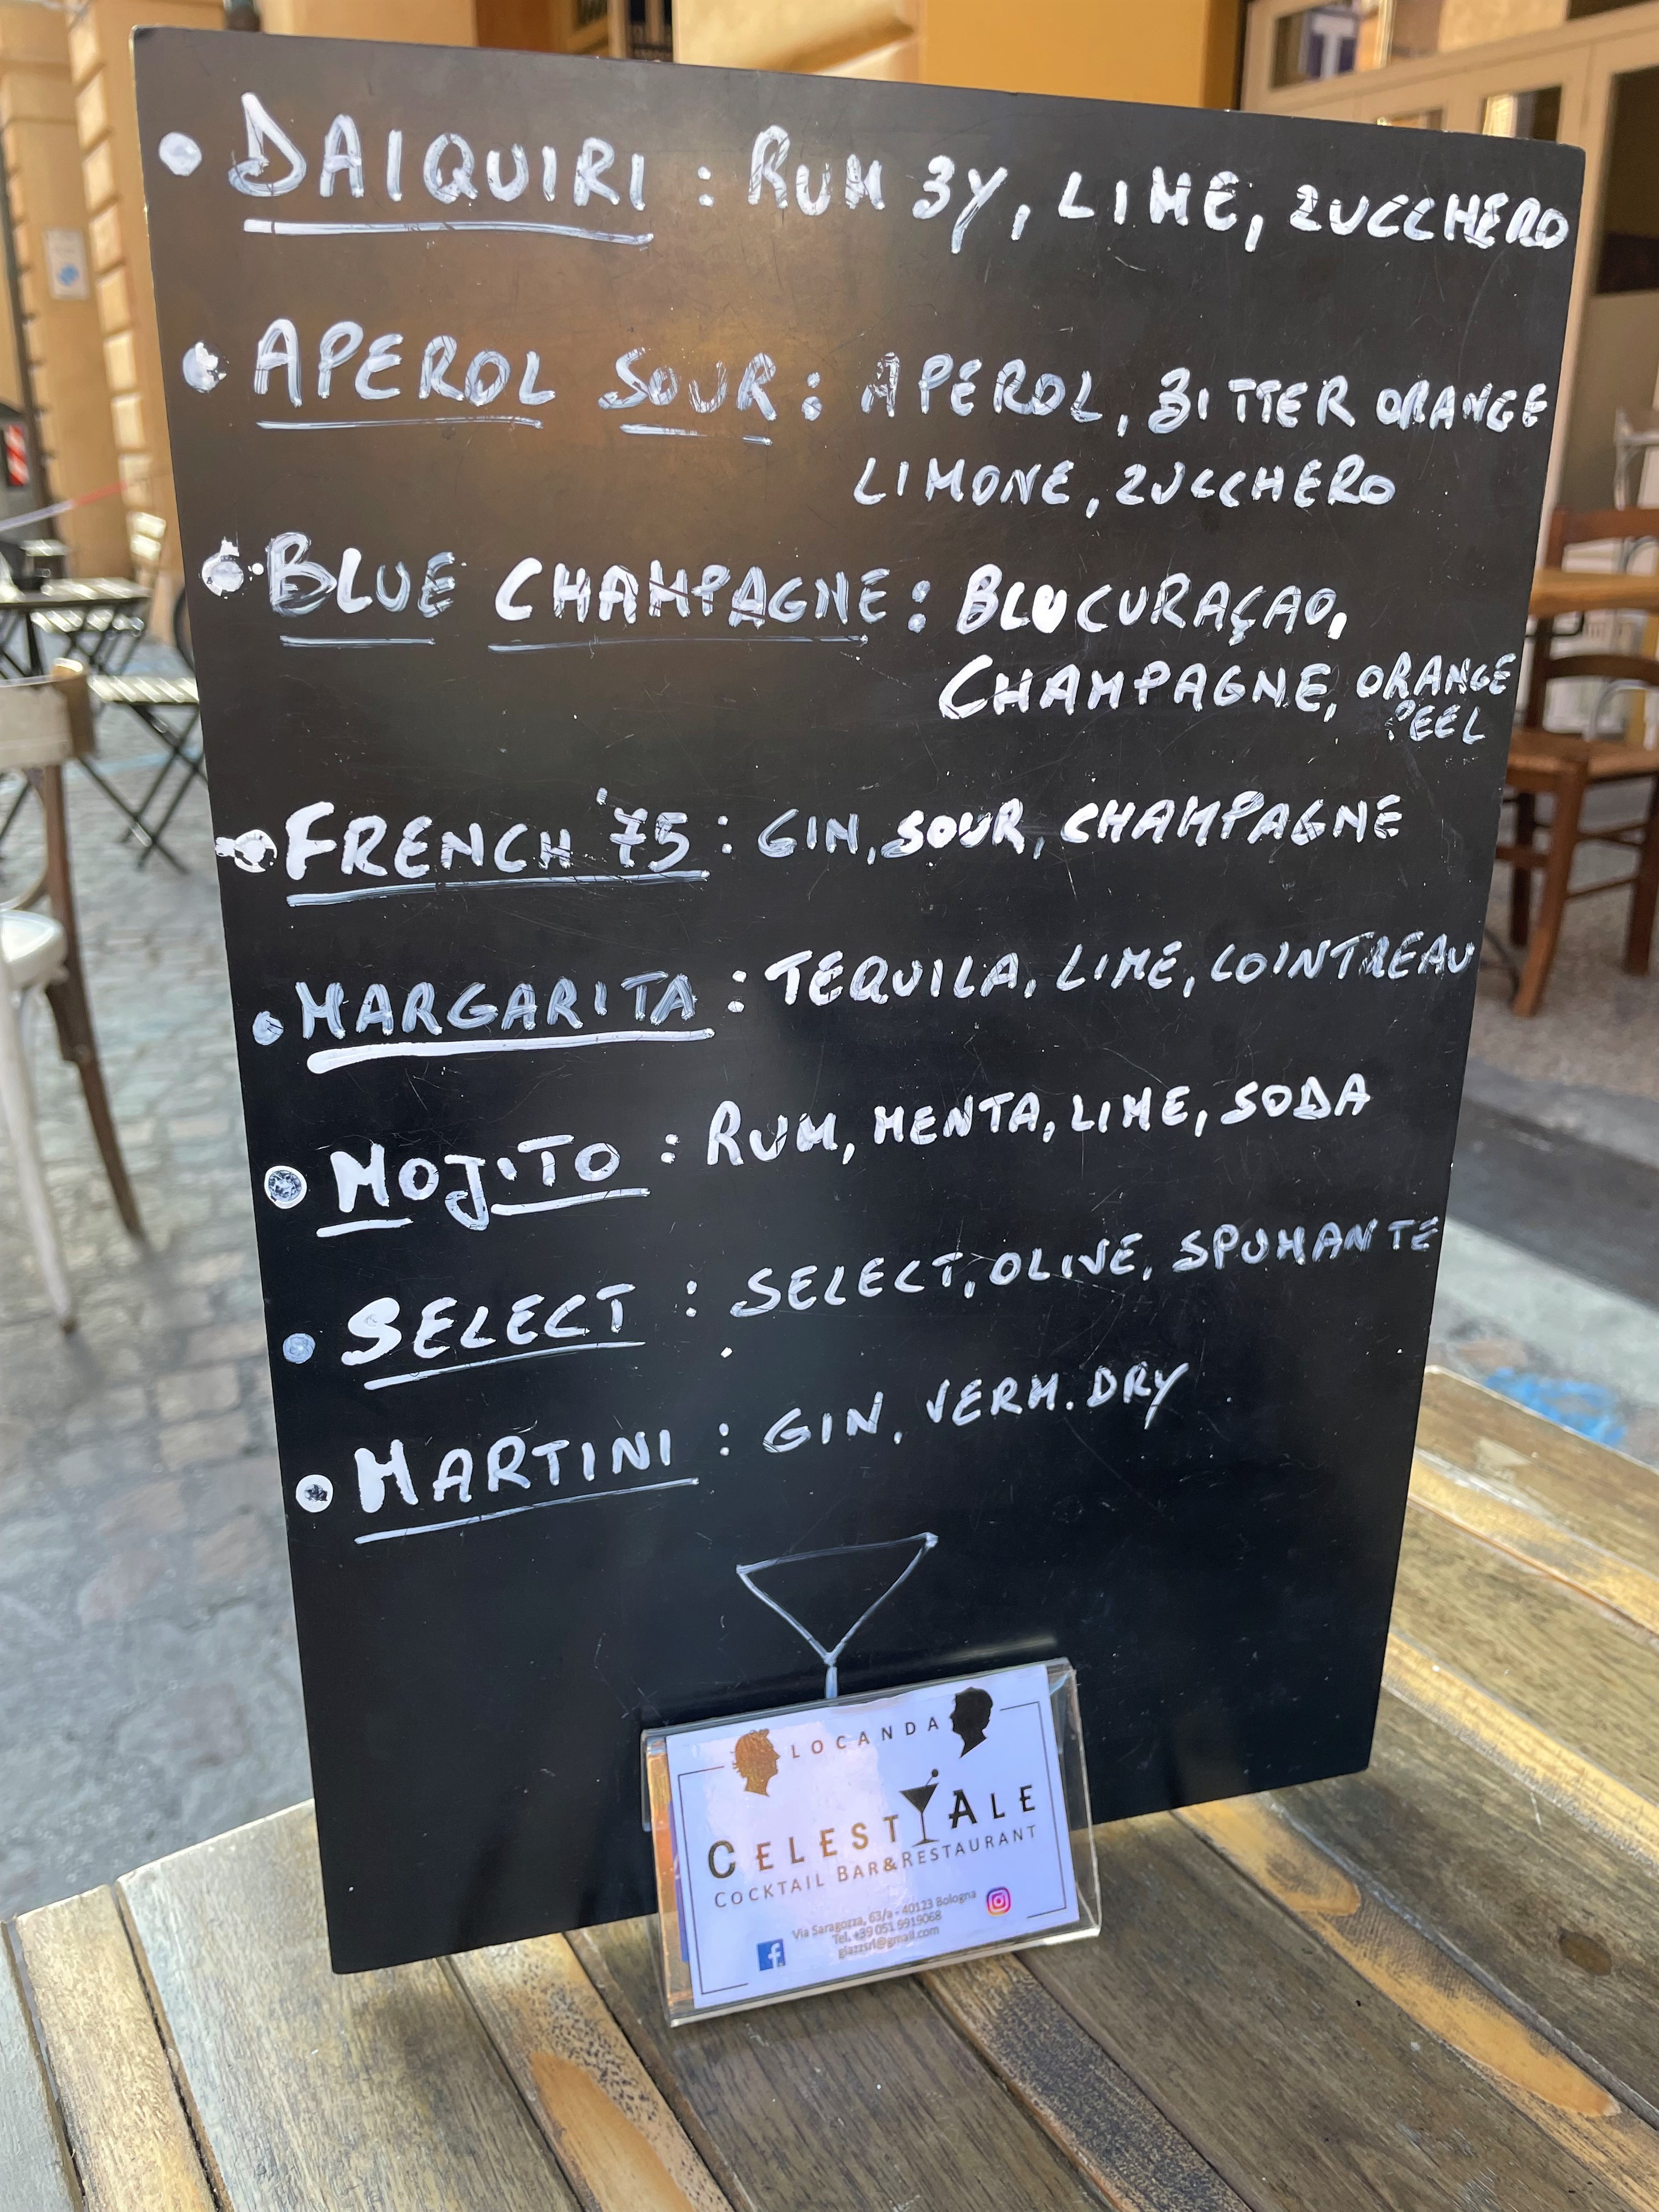 • DAIQUIRI : RUM 3Y, LIME, ZUCCHERO
• APEROL SOUR : APEROL, BITTER ORANGE
LIMONE, ZUCCHERO
• BLUE CHAMPAGNE : BLUCURAÇAO,
CHAMPAGNE, ORANGE
PEEL
• FRENCH '75 : GIN, SOUR, CHAMPAGNE
• MARGARITA : TEQUILA, LIME, COINTREAU
• MOJITO : RUM, MENTA, LIME, SODA
• SELECT : SELECT, OLIVE, SPUMANTE
• MARTINI : GIN, VERM. DRY
LOCANDA
CELESTYALE
COCKTAIL BAR&RESTAURANT
Via Saragozza, 63/a - 40123 Bologna
Tel. +39 051 9919068
glazzsrl@gmail.com